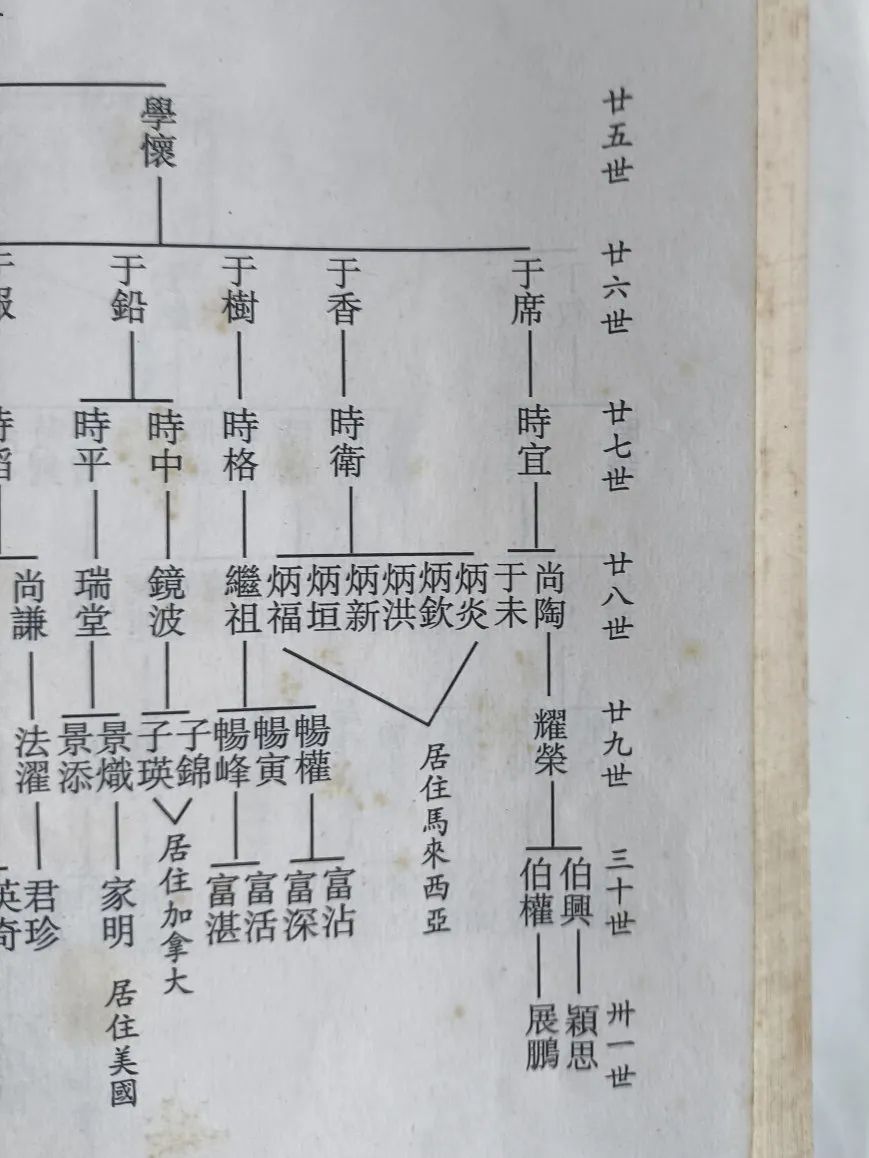 廿五世
廿六世
廿七世
廿八世
廿九世
三十世
卅一世
學懷
于席
于香
于樹
于鉛
時宜
時衛
時格
時中
時平
尚陶
于未
炳炎
炳欽
炳洪
炳新
炳垣
炳福
繼祖
鏡波
瑞堂
尚謙
耀榮
居住馬來西亞
暢權
暢寅
暢峰
子錦
子瑛
景熾
景添
法濯
伯興
伯權
富沾
富深
富活
富湛
居住加拿大
家明
居住美國
君珍
穎思
展鵬